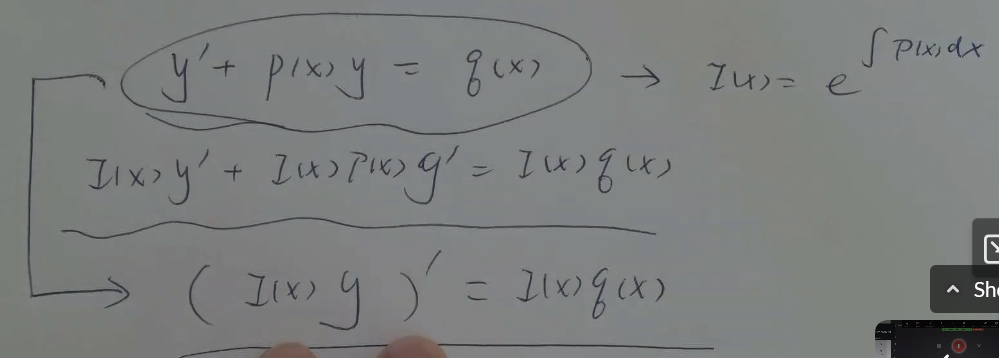 y' + p(x) y = q(x) → I(x) = e^{∫ P(x) dx}
I(x) y' + I(x) P(x) y' = I(x) q(x)
( I(x) y )' = I(x) q(x)